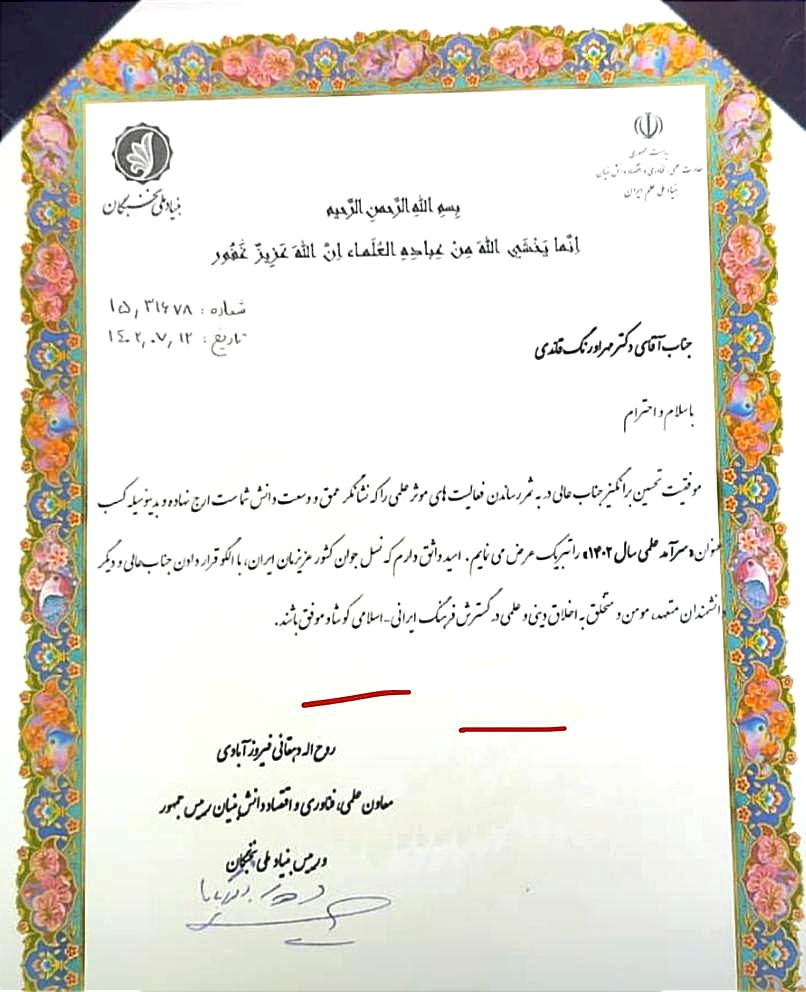 ریاست جمهوری
معاونت علمی، فناوری و اقتصاد دانش بنیان
بنیاد ملی علم ایران
بنیاد ملی نخبگان
بسم الله الرحمن الرحیم
انما یخشی الله من عباده العلماء ان الله عزیز غفور
شماره : ۱۵٫۳۱۶۷۸
تاریخ : ۱۴۰۲٫۰۷٫۱۲
جناب آقای دکتر مهر اورنگ قائدی
با سلام و احترام
موفقیت تحسین برانگیز جناب عالی در به ثمر رساندن فعالیت های موثر علمی را که نشانگر عمق و وسعت دانش شماست ارج نهاده و بدینوسیله کسب
عنوان «سرآمد علمی سال ۱۴۰۲» را تبریک عرض می نمایم. امید واثق دارم که نسل جوان کشور عزیزمان ایران، با الگو قرار دادن جناب عالی و دیگر
دانشمندان متعهد، مومن و متخلق به اخلاق دینی و علمی در گسترش فرهنگ ایرانی-اسلامی کوشا و موفق باشند.
روح اله دهقانی فیروزآبادی
معاون علمی، فناوری و اقتصاد دانش بنیان رییس جمهور
و رییس بنیاد ملی نخبگان